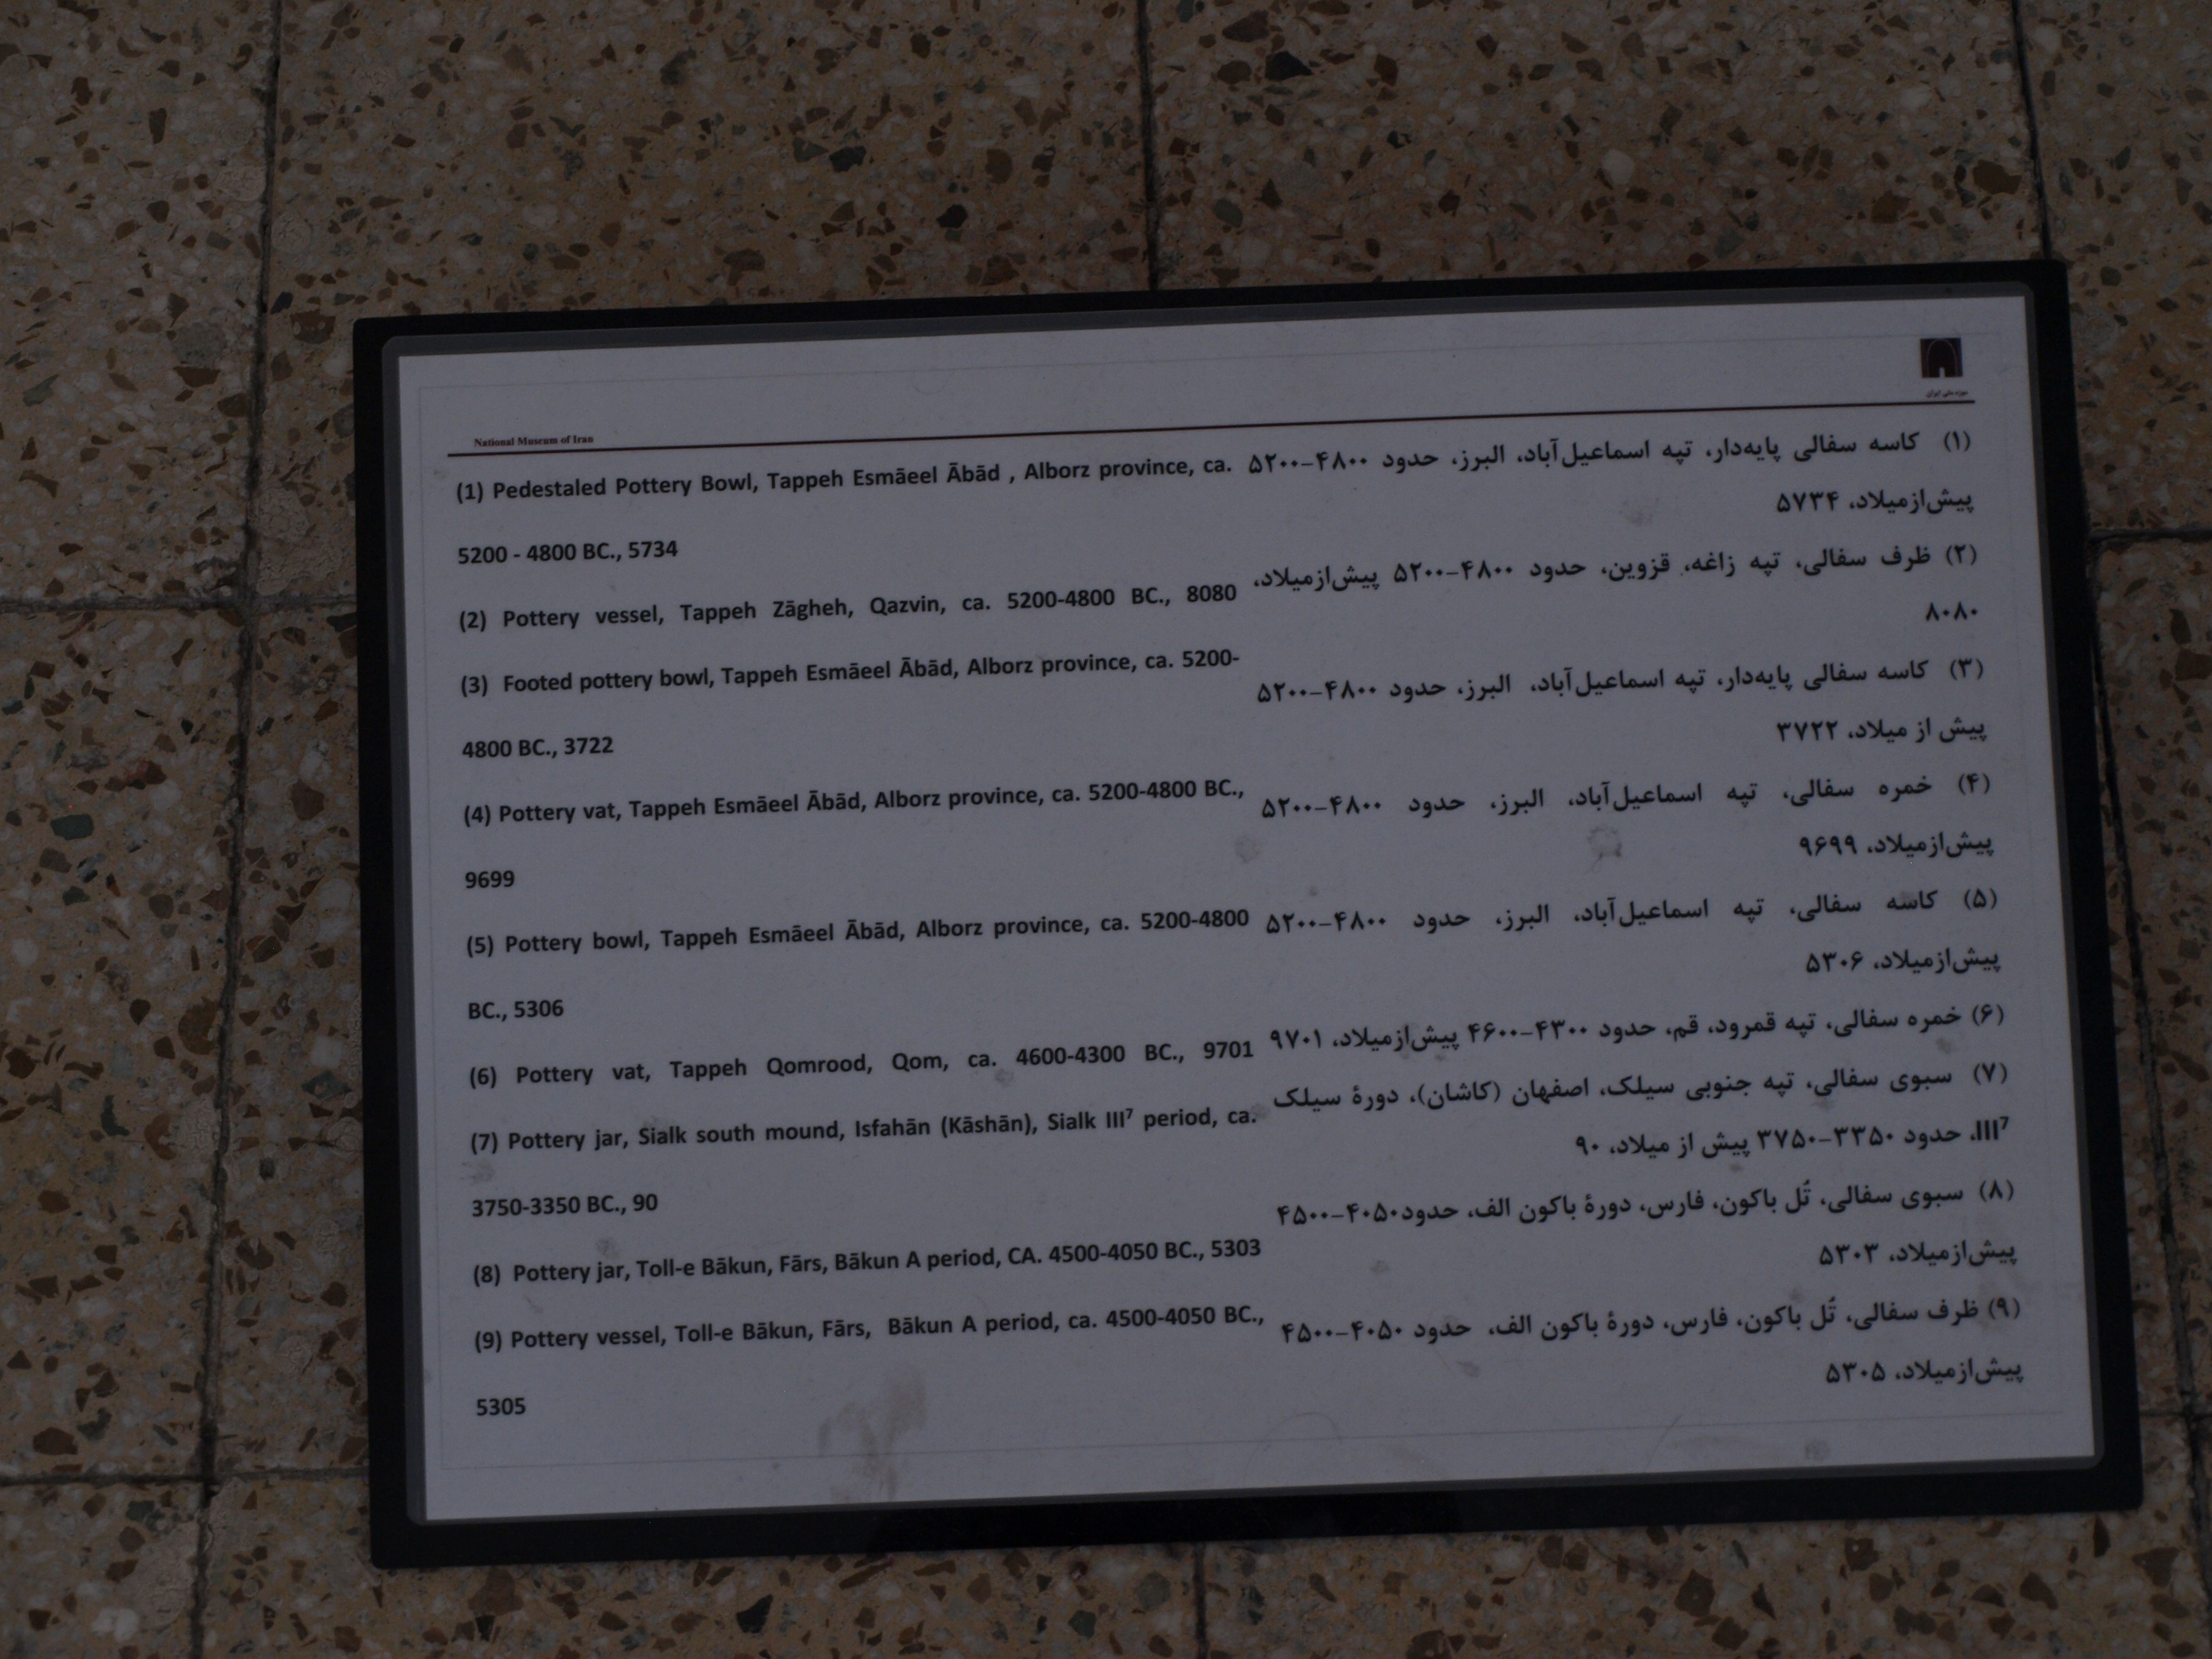 موزه ملی ایران
National Museum of Iran
(1) Pedestaled Pottery Bowl, Tappeh Esmāeel Ābād , Alborz province, ca.
5200 - 4800 BC., 5734
(2) Pottery vessel, Tappeh Zāgheh, Qazvin, ca. 5200-4800 BC., 8080
(3) Footed pottery bowl, Tappeh Esmāeel Ābād, Alborz province, ca. 5200-
4800 BC., 3722
(4) Pottery vat, Tappeh Esmāeel Ābād, Alborz province, ca. 5200-4800 BC.,
9699
(5) Pottery bowl, Tappeh Esmāeel Ābād, Alborz province, ca. 5200-4800
BC., 5306
(6) Pottery vat, Tappeh Qomrood, Qom, ca. 4600-4300 BC., 9701
(7) Pottery jar, Sialk south mound, Isfahān (Kāshān), Sialk III⁷ period, ca.
3750-3350 BC., 90
(8) Pottery jar, Toll-e Bākun, Fārs, Bākun A period, CA. 4500-4050 BC., 5303
(9) Pottery vessel, Toll-e Bākun, Fārs, Bākun A period, ca. 4500-4050 BC.,
5305
(۱) کاسه سفالی پایه‌دار، تپه اسماعیل‌آباد، البرز، حدود ۴۸۰۰-۵۲۰۰
پیش‌ازمیلاد، ۵۷۳۴
(۲) ظرف سفالی، تپه زاغه، قزوین، حدود ۴۸۰۰-۵۲۰۰ پیش‌ازمیلاد،
۸۰۸۰
(۳) کاسه سفالی پایه‌دار، تپه اسماعیل‌آباد، البرز، حدود ۴۸۰۰-۵۲۰۰
پیش از میلاد، ۳۷۲۲
(۴) خمره سفالی، تپه اسماعیل‌آباد، البرز، حدود ۴۸۰۰-۵۲۰۰
پیش‌ازمیلاد، ۹۶۹۹
(۵) کاسه سفالی، تپه اسماعیل‌آباد، البرز، حدود ۴۸۰۰-۵۲۰۰
پیش‌ازمیلاد، ۵۳۰۶
(۶) خمره سفالی، تپه قمرود، قم، حدود ۴۳۰۰-۴۶۰۰ پیش‌ازمیلاد، ۹۷۰۱
(۷) سبوی سفالی، تپه جنوبی سیلک، اصفهان (کاشان)، دورهٔ سیلک
III⁷، حدود ۳۳۵۰-۳۷۵۰ پیش از میلاد، ۹۰
(۸) سبوی سفالی، تُل باکون، فارس، دورهٔ باکون الف، حدود۴۰۵۰-۴۵۰۰
پیش‌ازمیلاد، ۵۳۰۳
(۹) ظرف سفالی، تُل باکون، فارس، دورهٔ باکون الف، حدود ۴۰۵۰-۴۵۰۰
پیش‌ازمیلاد، ۵۳۰۵